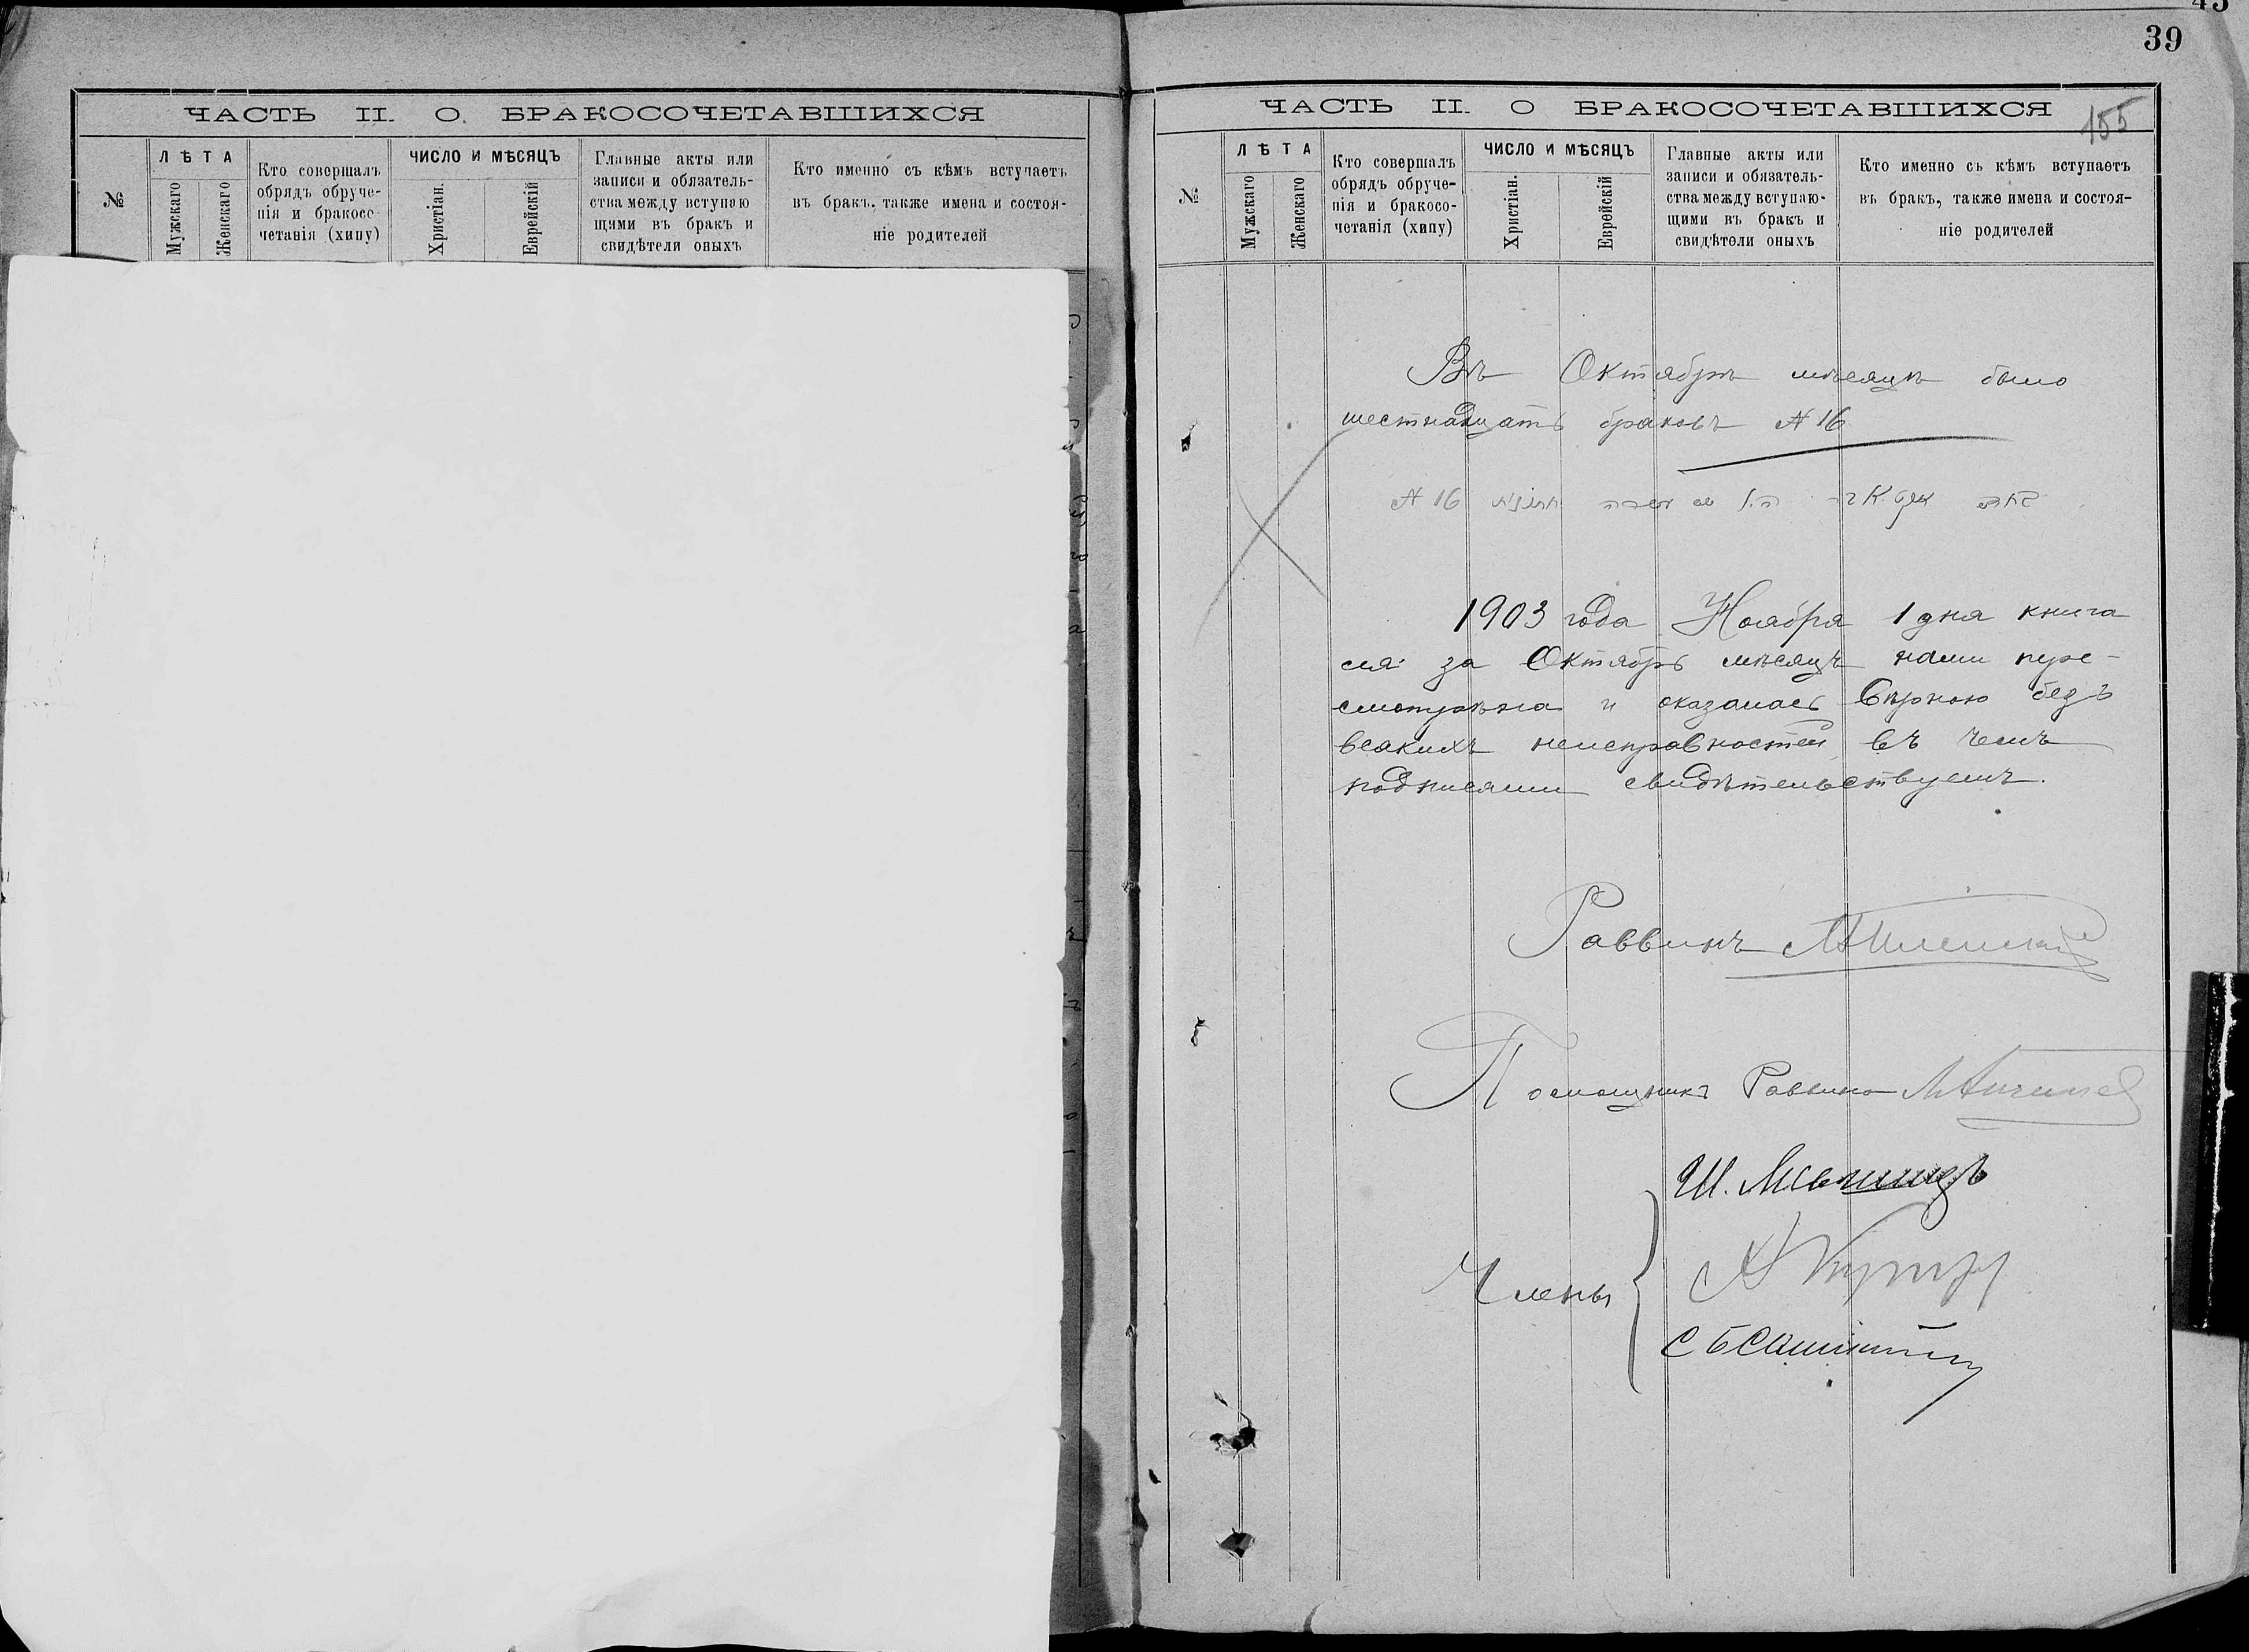 ЧАСТЬ II. О БРАКОСОЧЕТАВШИХСЯ
№
ЛѢТА
Мужскаго
Женскаго
Кто совершалъ
обрядъ обруче-
нія и бракосо-
четанія (хипу)
ЧИСЛО И МѢСЯЦЪ
Христіан.
Еврейскій
Главные акты или
записи и обязатель-
ства между вступаю
щими въ бракъ и
свидѣтели оныхъ
Кто именно съ кѣмъ вступаетъ
въ бракъ, также имена и состоя-
ніе родителей
43
39
155
ЧАСТЬ II. О БРАКОСОЧЕТАВШИХСЯ
№
ЛѢТА
Мужскаго
Женскаго
Кто совершалъ
обрядъ обруче-
нія и бракосо-
четанія (хипу)
ЧИСЛО И МѢСЯЦЪ
Христіан.
Еврейскій
Главные акты или
записи и обязатель-
ства между вступаю-
щими въ бракъ и
свидѣтели оныхъ
Кто именно съ кѣмъ вступаетъ
въ бракъ, также имена и состоя-
ніе родителей
Въ Октябрѣ мѣсяцѣ было
шестнадцать браковъ № 16
№ 16
1903 года Ноября 1 дня книга
сія за Октябрь мѣсяцъ нами пере-
смотрѣна и оказалась вѣрною безъ
всякихъ неисправностей въ чемъ
подписями свидѣтельствуемъ.
Раввинъ
Помощникъ Раввина
Ш.
Члены